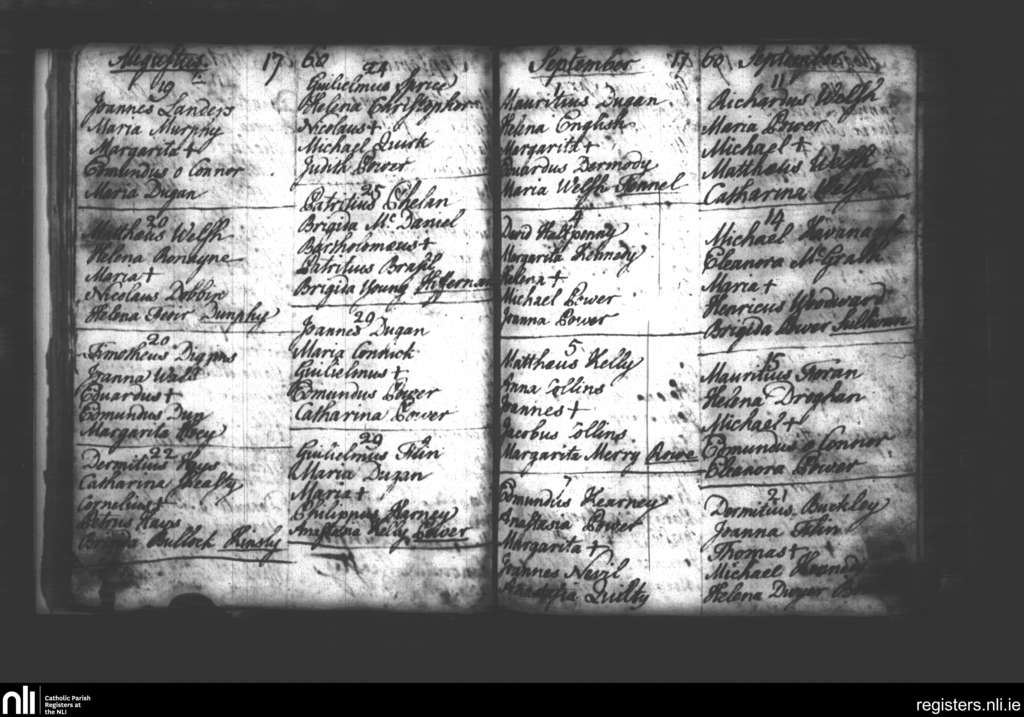 Augustus 17
19
Joannes Landers
Maria Murphy
Margarita +
Edmundus o Connor
Maria Dugan
20
Matthæus Welsh
Helena Ronayne
Maria +
Nicolaus Dobbin
Helena Dunphy
20
Timotheus
Joanna Wall
Eduardus +
Edmundus Dun
Margarita
22
Dermitius Hays
Catharina Healy
Cornelius +
Petrus Hays
Brigida Bullock Kinsly
60
24
Guilielmus Price
Helena Christopher
Nicolaus +
Michael Quirk
Judith Power
25
Patritius Phelan
Brigida Mc Daniel
Bartholomæus +
Patritius Brasil
Brigida Young Heffernan
29
Joannes Dugan
Maria Connick
Guilielmus +
Edmundus Power
Catharina Power
29
Guilielmus Flin
Maria Dugan
Maria +
Philippus Karney
Anastasia Kelly Power
September 17
1
Mauritius Dugan
Helena English
Margarita +
Eduardus Dermody
Maria Welsh Fennel
4
David Halfpenny
Margarita Kennedy
Helena +
Michael Power
Joanna Power
5
Matthæus Kelly
Anna Collins
Joannes +
Jacobus Collins
Margarita Merry Rowe
7
Edmundus Kearney
Anastasia Power
Margarita +
Joannes Nevil
Anastasia Quilty
60 September
11
Richardus Welsh
Maria Power
Michael +
Matthæus Walsh
Catharina Welsh
14
Michael Kavanagh
Eleanora McGrath
Maria +
Henricus Woodward
Brigida Power Sullivan
15
Mauritius Foran
Helena Droghan
Michael +
Edmundus o Connor
Eleanora Power
21
Dermitius Buckley
Joanna Flin
Thomas +
Michael
Helena Dwyer
nli
Catholic Parish
Registers at
the NLI
registers.nli.ie